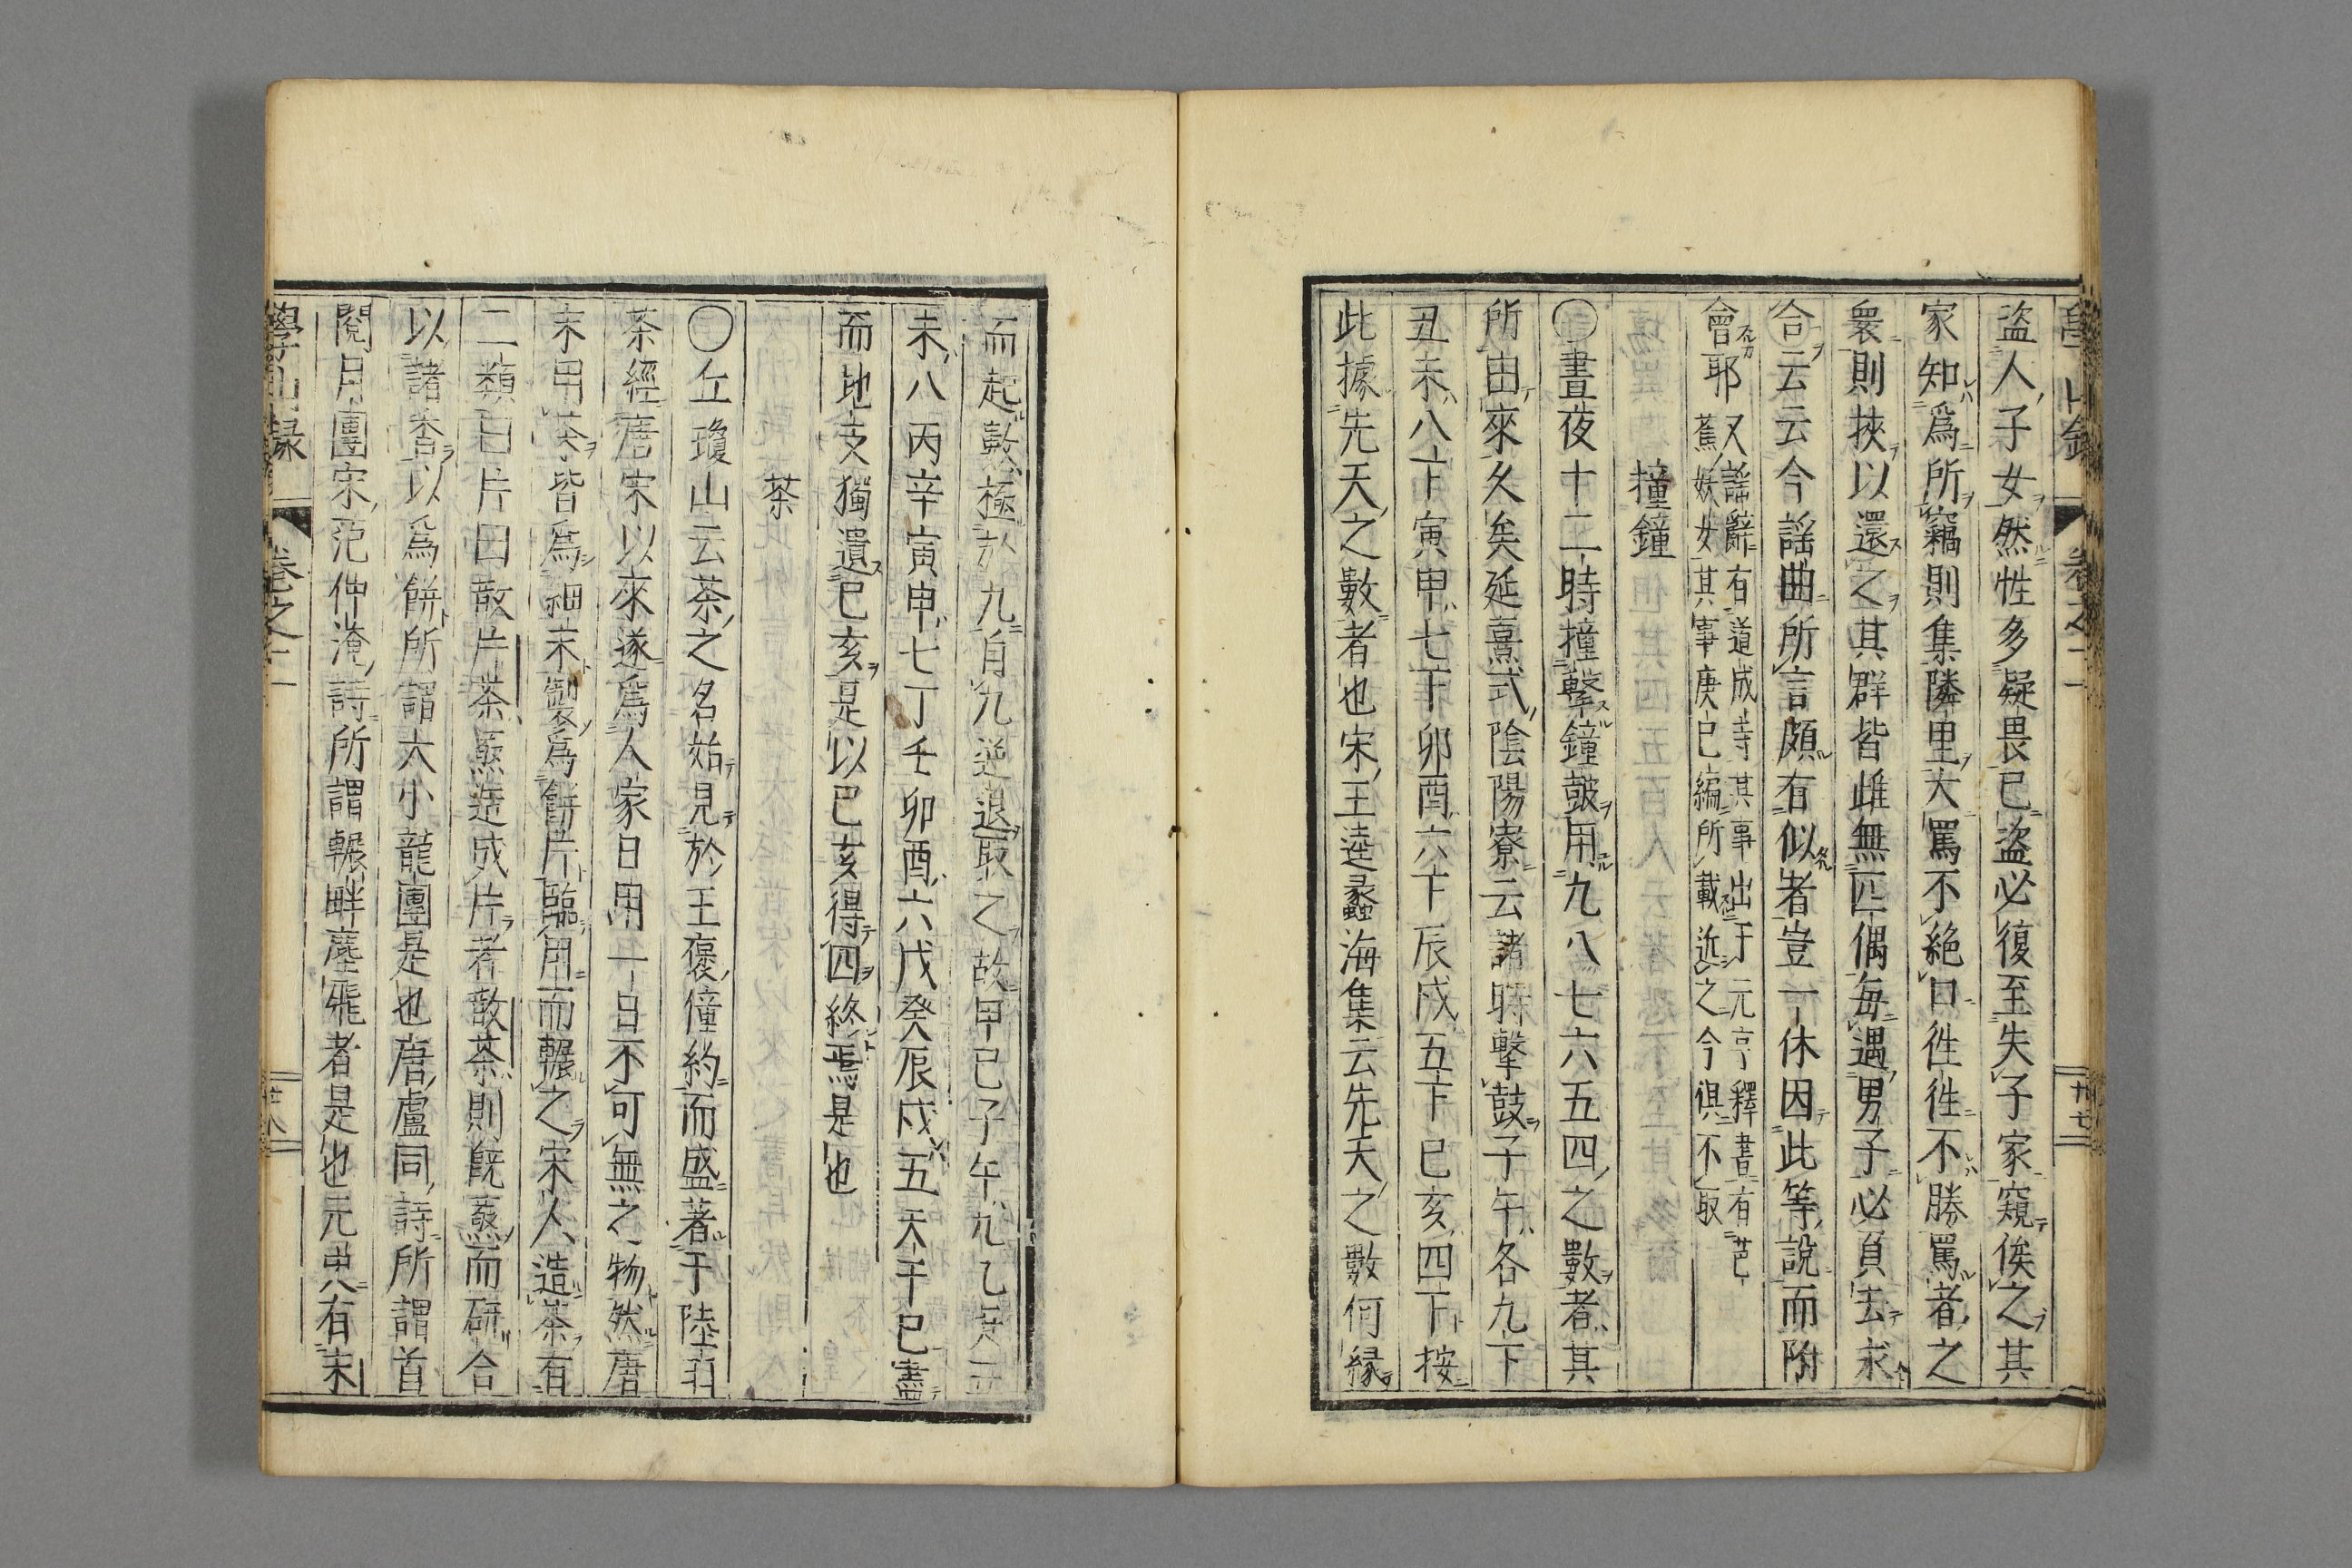 盜人子女然性多疑畏已盜必復至失子家窺俟之其
家知爲所竊則集隣里大罵不絕口徃徃不勝罵者之
衆則挾以還之其群皆雌無匹偶每遇男子必負去求
合云云今謡曲所言頗有似者豈一休因此等說而附
會耶
又謡辭有道成寺其事出于元亨釋書有芭
蕉妖女其事庚巳編所載近之今俱不取
撞鐘
〇晝夜十二時撞擊鐘皷用九八七六五四之數者其
所由來久矣延熹式陰陽寮云諸時擊鼓子午各九下
丑未八下寅申七下卯酉六下辰戌五下巳亥四下按
此據先天之數者也宋王逵蠡海集云先天之數何緣
而起數極於九自九逆退取之故甲己子午九乙庚丑
未八丙辛寅申七丁壬卯酉六戊癸辰戌五天干已盡
而地支獨遺巳亥是以巳亥得四終焉是也
茶
〇丘瓊山云茶之名始見於王褒僮約而盛著于陸羽
茶經唐宋以來遂爲人家日用一日不可無之物然唐
末用茶皆爲細末製爲餅片臨用而輾之宋人造茶有
二類曰片曰散片茶蒸造成片者散茶則旣蒸而硏合
以諸香以爲餅所謂大小龍團是也唐盧同詩所謂首
閱月團宋范仲淹詩所謂輾畔塵飛者是也元史有末
學山録
卷之二